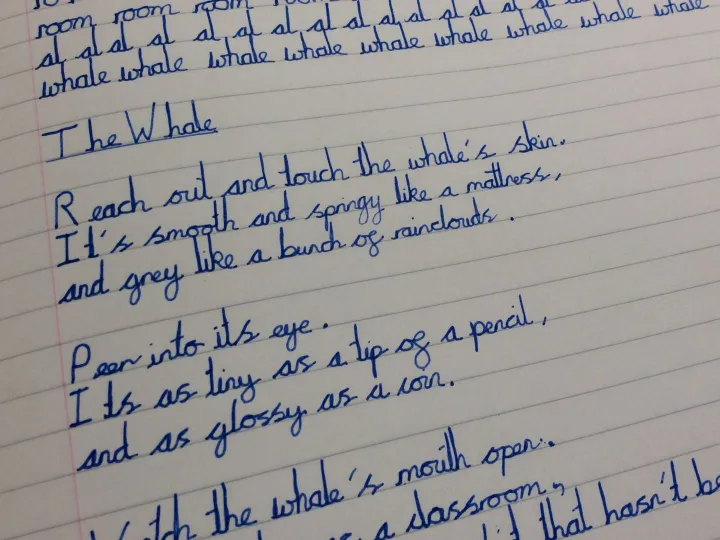 room room room
al al al al al al al al al al al al al al
whale whale whale whale whale whale whale whale whale
The Whale
Reach out and touch the whale's skin.
It's smooth and springy like a mattress,
and grey like a bunch of rainclouds.
Peer into its eye.
Its as tiny as a tip of a pencil,
and as glossy as a coin.
the whale's mouth open.
a classroom,
that hasn't